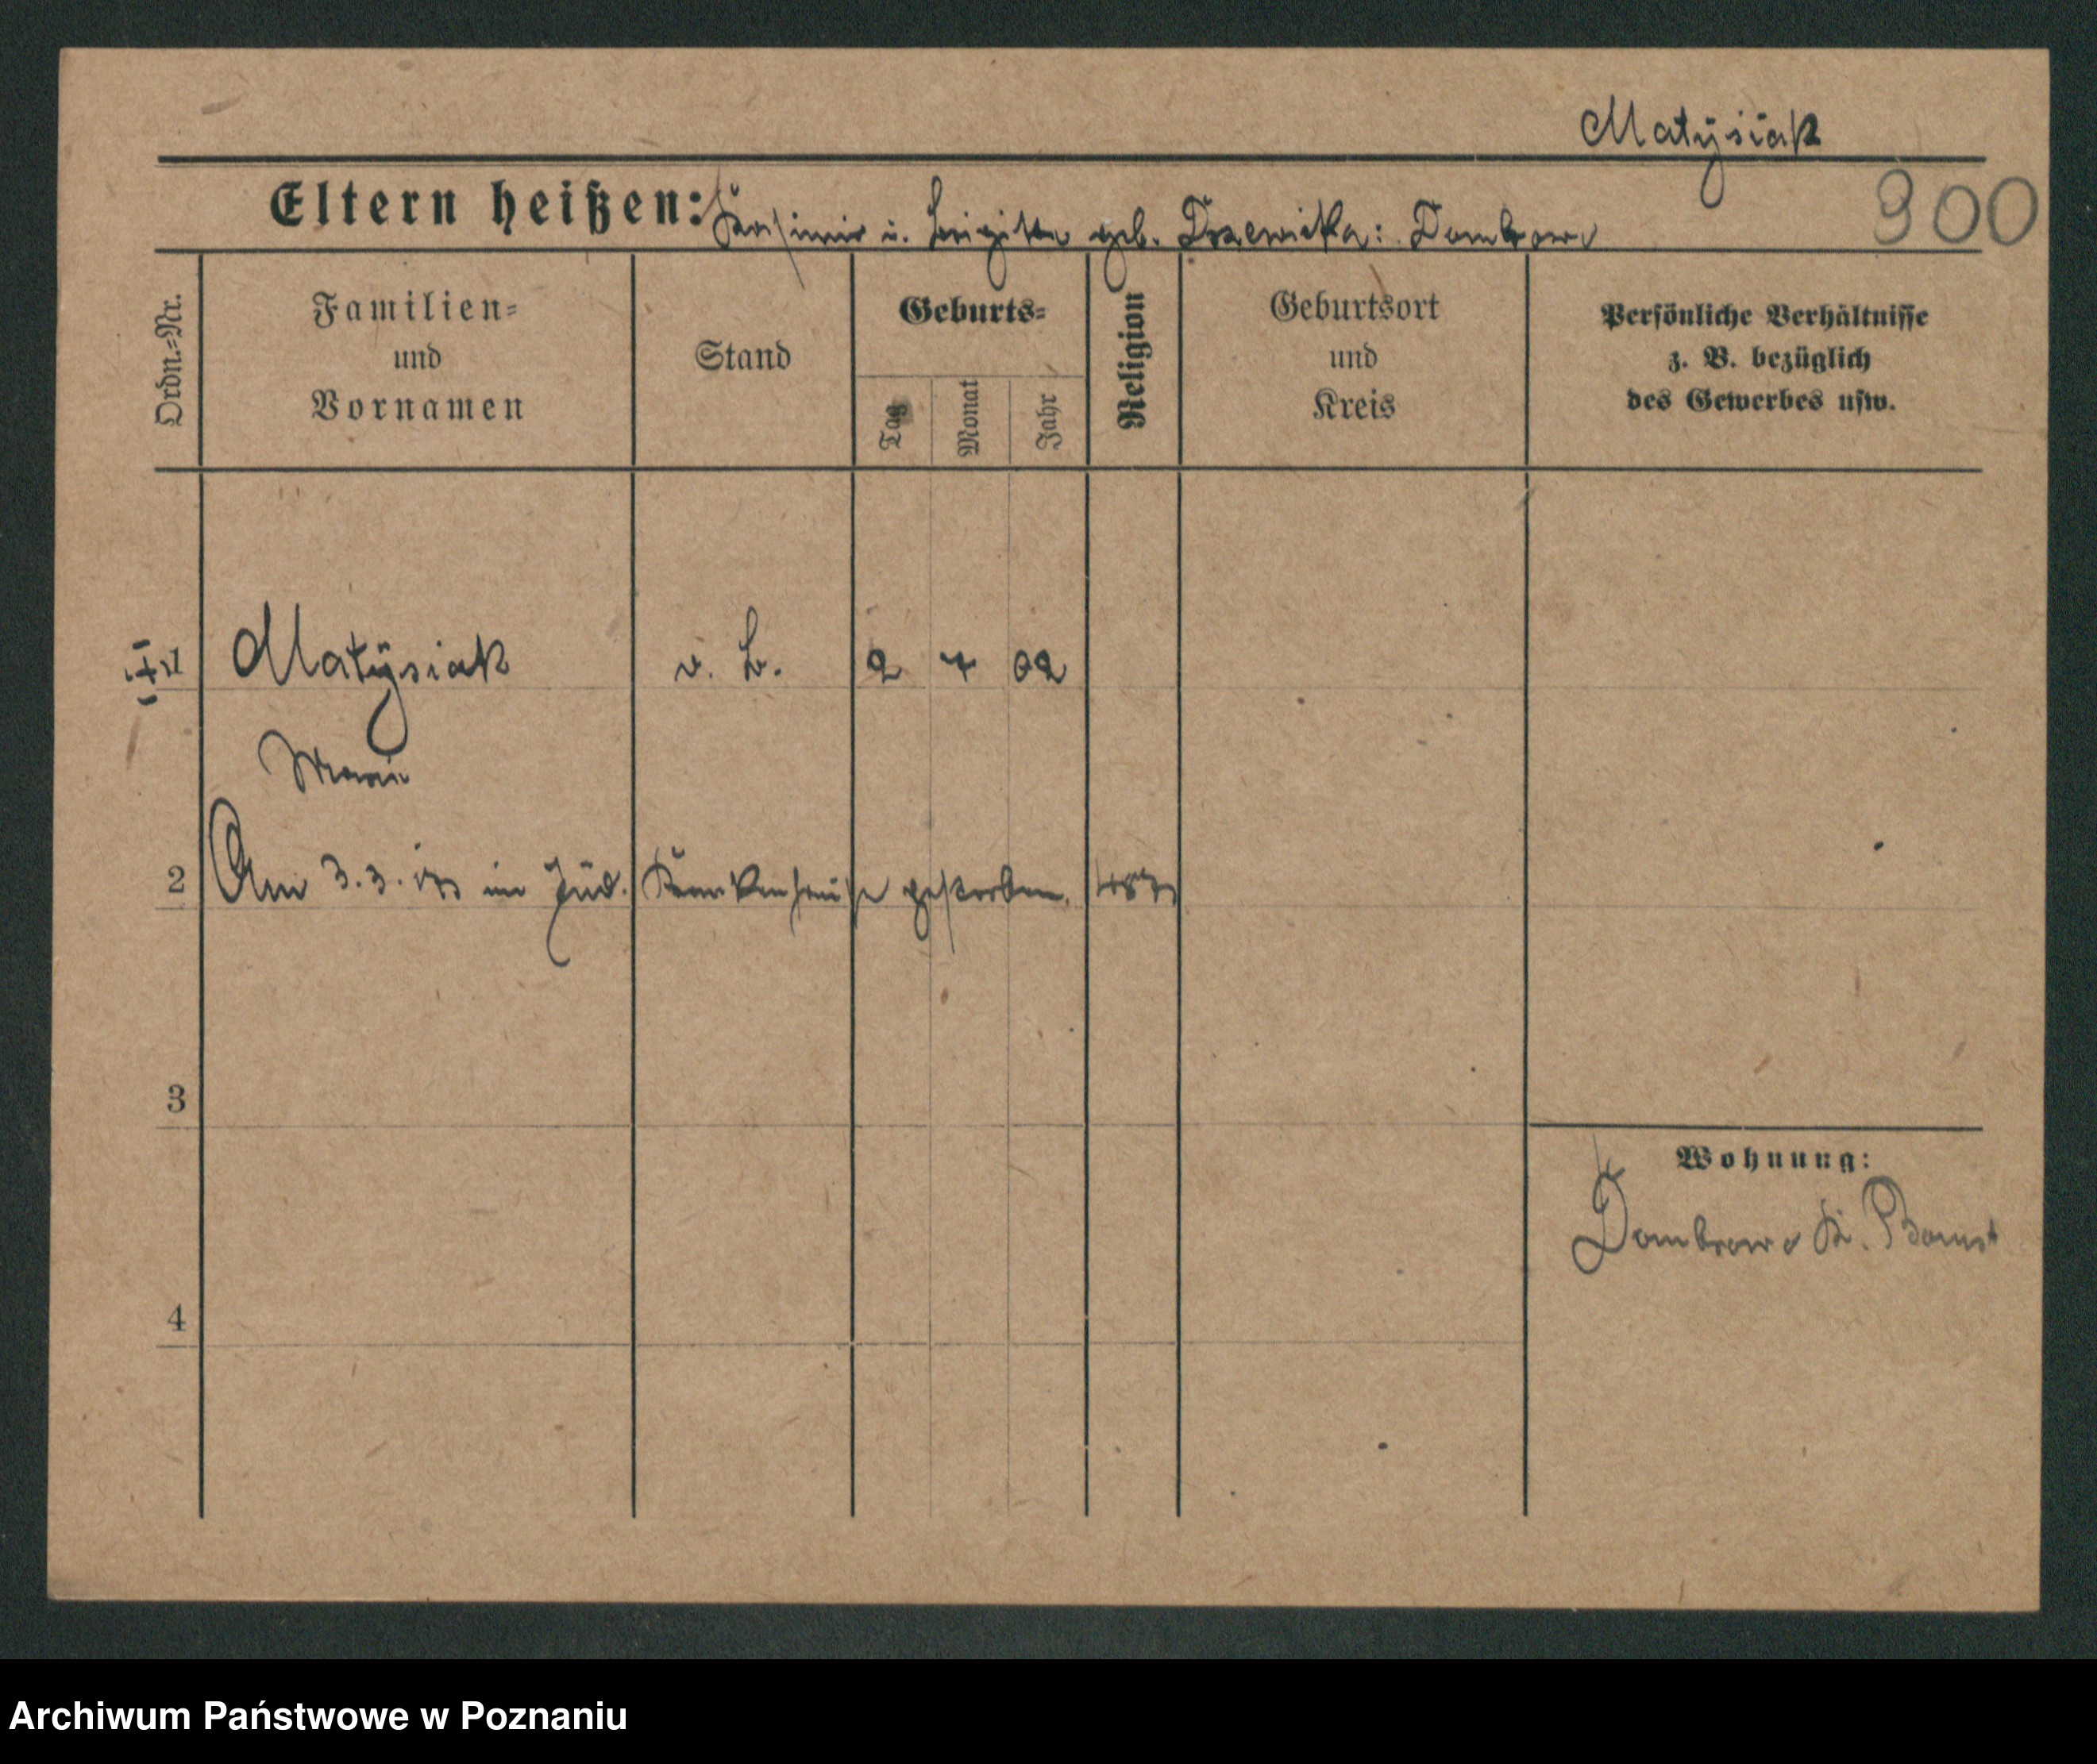 Matÿsiak
Eltern heißen: Kasimir u. Brigitte geb. Drzewicka: Dombrowo
300
Ordn.-Nr.
Familien-
und
Vornamen
Stand
Geburts-
Tag
Monat
Jahr
Religion
Geburtsort
und
Kreis
Persönliche Verhältnisse
z. B. bezüglich
des Gewerbes usw.
1 Matÿsiak 2 02
Marie
2 Am 3.3. im Jüd. Krankenhause gestorben.
3
Wohnung:
Dombrowo Kr. Bomst
4
Archiwum Państwowe w Poznaniu